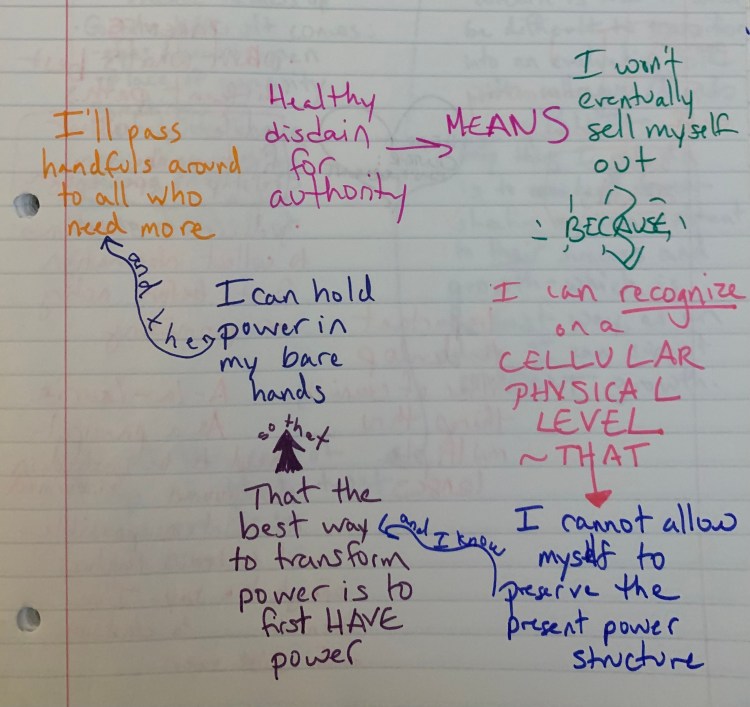 Healthy
disdain
for
authority
MEANS
I won't
eventually
sell myself
out
BECAUSE,
I can recognize
on a
CELLULAR
PHYSICAL
LEVEL
~THAT
I cannot allow
myself to
preserve the
present power
structure
and I know
That the
best way
to transform
power is to
first HAVE
power
so that
I can hold
power in
my bare
hands
and then
I'll pass
handfuls around
to all who
need more